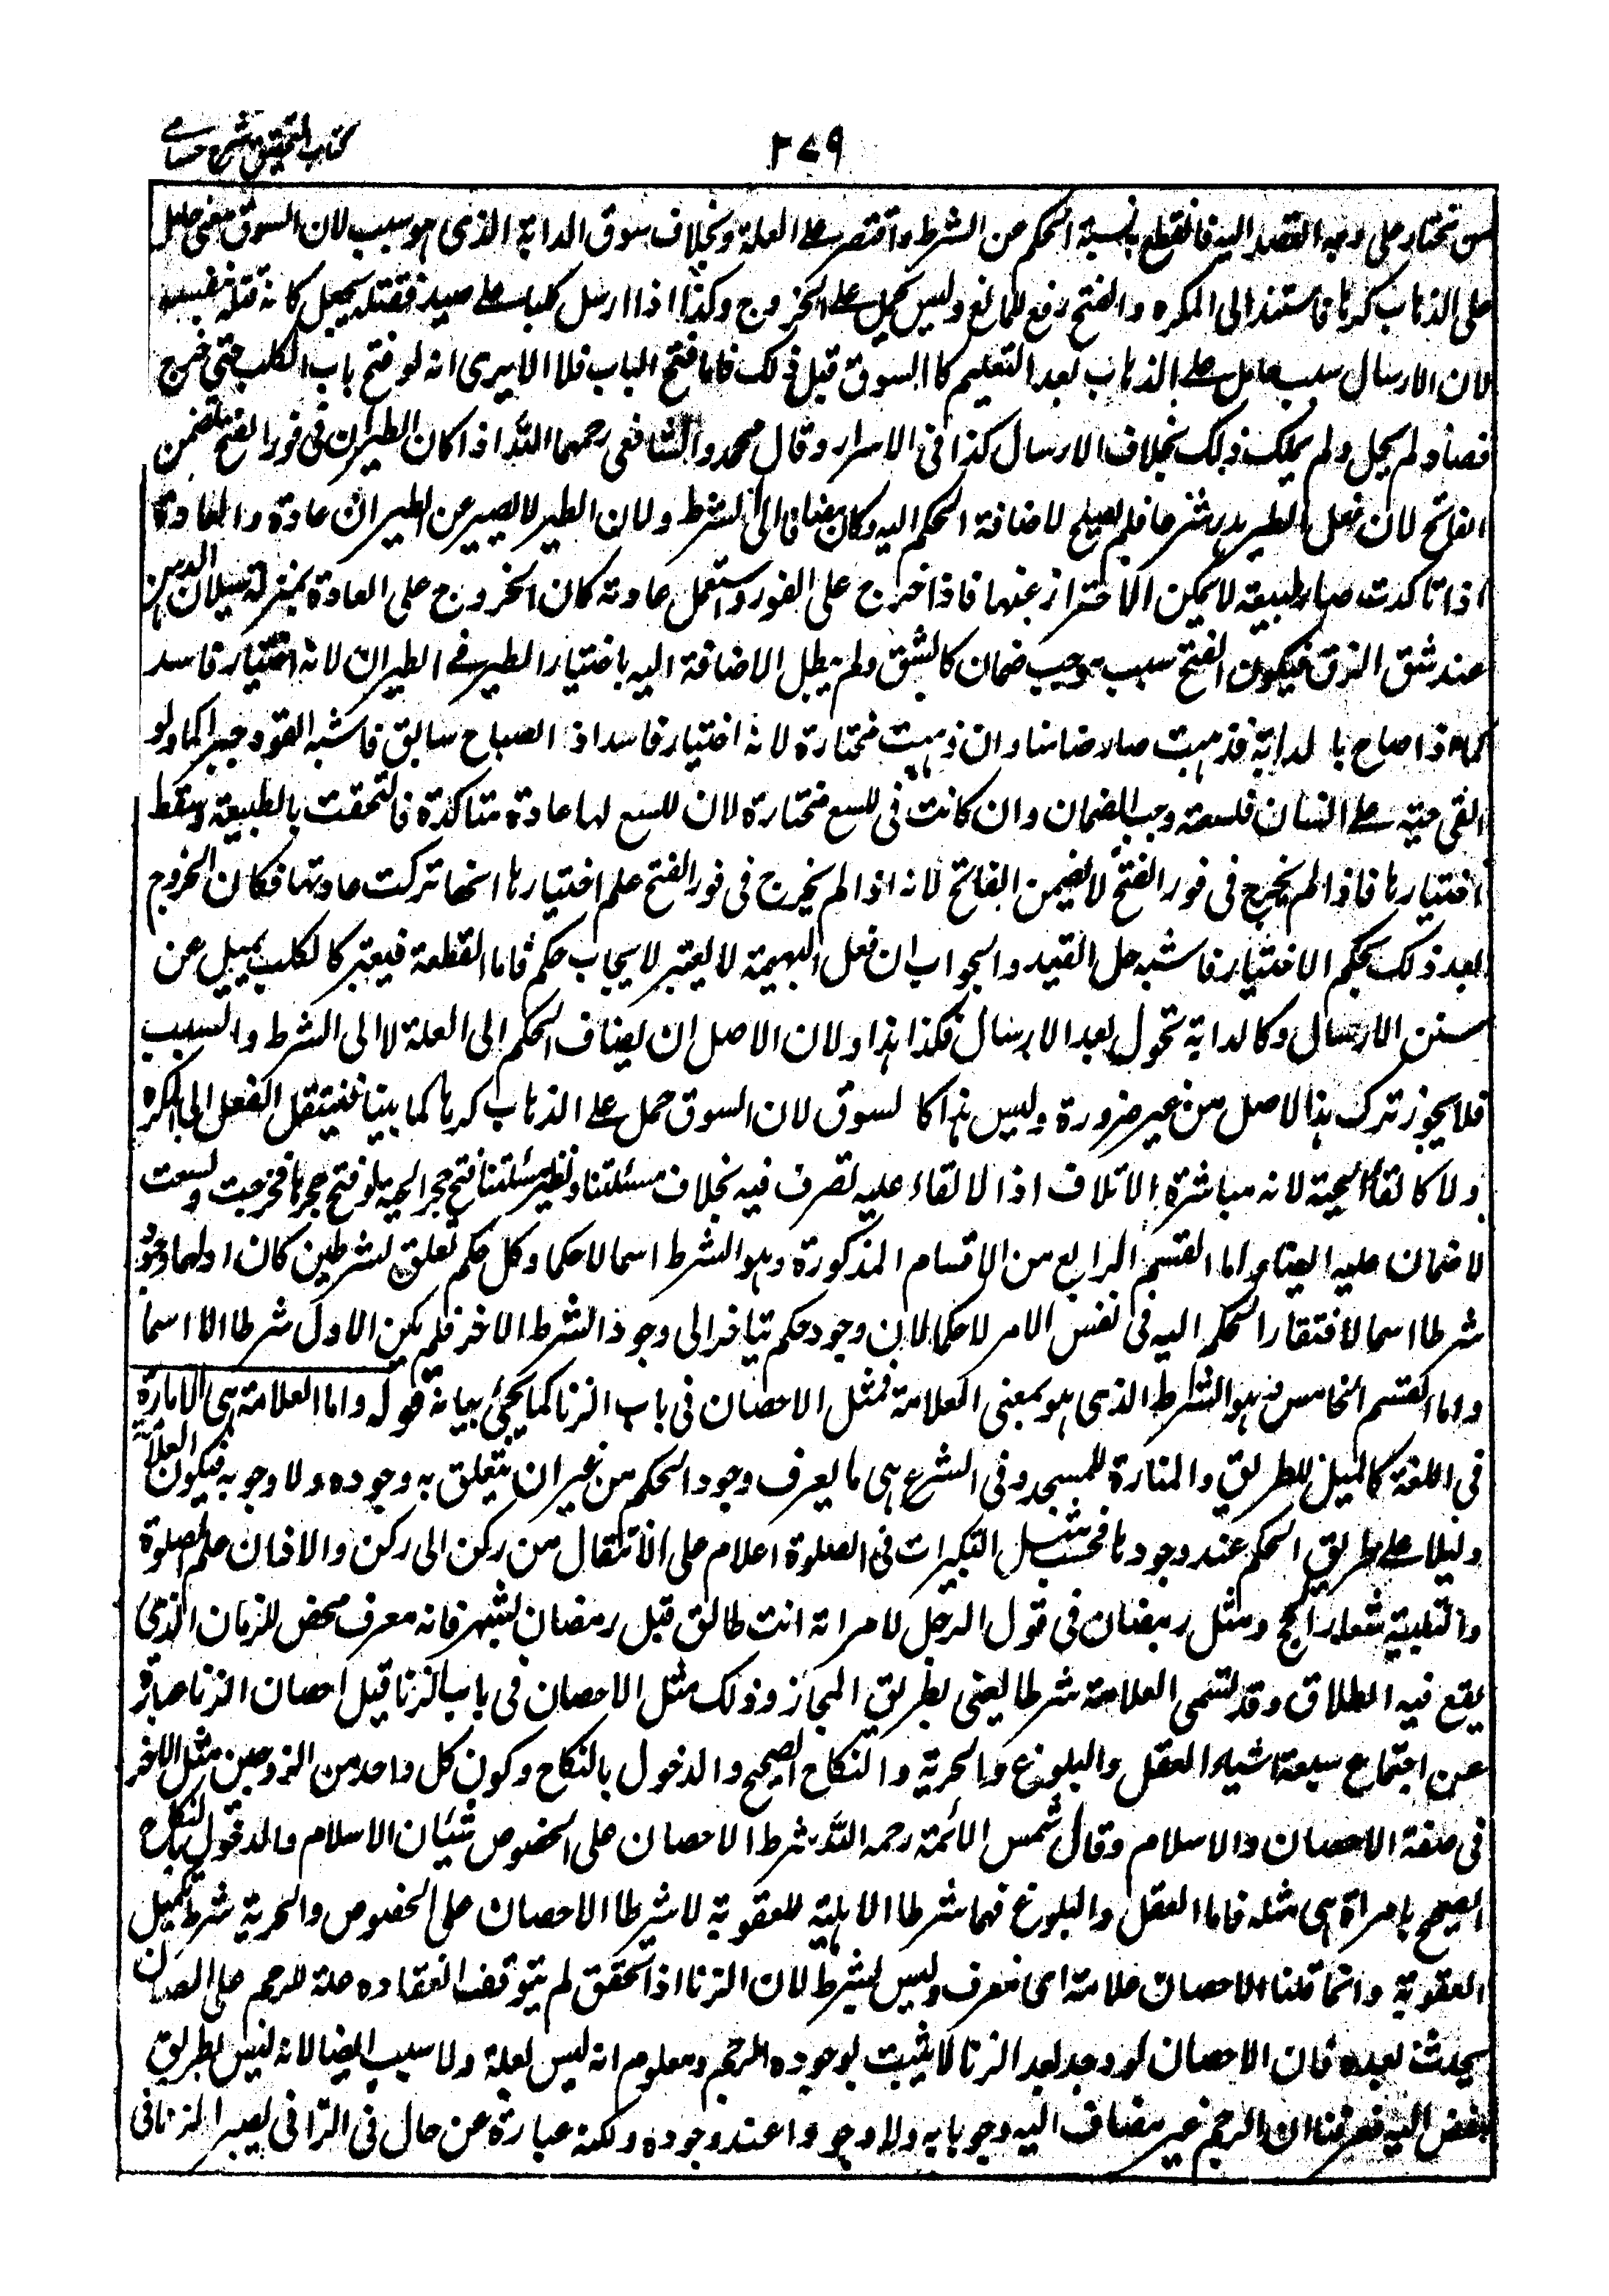 كتاب التحقيق شرح حسامي
٢٧٩
من مختار على وجه القصد اليه فانقطع نسبة الحكم من الشرط واقتصر على العلة وبخلاف سوق الدابة الذى هو سبب لان السوق معنى حامل
على الذهاب كرها فاستند الى المكره والفتح رفع للمانع وليس بحمل على الخروج وكذا اذا ارسل كلبا على صيد فقتله يجعل كانه قتله بنفسه
لان الارسال سبب حامل على الذهاب بعد التعليم كالسوق قبل ذلك فاما فتح الباب فلا الا يرى انه لو فتح باب الكلب حتى خرج
فصاد لم يحل ولم يملك ذلك بخلاف الارسال كذا فى الاسرار وقال محمد والشافعى رحمهما الله اذا كان الطيران فى فور الفتح يضمن
الفاتح لان فعل الطير هدر شرعا فلم يصلح لاضافة الحكم اليه وكان مضافا الى الشرط ولان الطير لا يصبر عن الطيران عادة والعادة
اذا تاكدت صار طبيعة لا يمكن الاحتراز عنها فاذا خرج على الفور واستعمل عادته كان الخروج على العادة بمنزلة سيلان الدهن
عند شق الزق فيكون الفتح سبب يوجب ضمان كالشق ولم يبطل الاضافة اليه باختيار الطير فى الطيران لانه اختيار فاسد
كما اذا صاح بالدابة فذهبت صار ضامنا وان ذهبت مختارة لانه اختيار فاسد اذ الصياح سابق فاشبه القود جبرا كما ولو
القى حية على انسان فلسعته وجب الضمان وان كانت فى اللسع مختارة لان للسع لها عادة متاكدة فالتحقت بالطبيعة وسقط
اختيارها فاذا لم يخرج فى فور الفتح لا يضمن الفاتح لانه اذا لم يخرج فى فور الفتح علم اختيارها انها تركت عادتها فكان الخروج
بعد ذلك بحكم الاختيار فاشبه حل القيد والجواب ان فعل البهيمة لا يعتبر لايجاب حكم فاما القطعة فيعتبر كالكلب يميل عن
سنن الارسال وكالدابة تحول بعد الارسال فكذا هذا ولان الاصل ان يضاف الحكم الى العلة لا الى الشرط والسبب
فلا يجوز ترك هذا الاصل من غير ضرورة وليس هذا كالسوق لان السوق حمل على الذهاب كرها كما بينا فينتقل الفعل الى المكره
ولا كالقاء الحية لانه مباشرة الاتلاف اذ الالقاء عليه تصرف فيه بخلاف مسئلتنا ونظير مسئلتنا فتح جحر الحية لو فتح جحرها فخرجت ولسعت
لا ضمان عليه ايضا واما القسم الرابع من الاقسام المذكورة وهو الشرط اسما لا حكما وكل حكم تعلق بشرطين كان اولهما وجودا
شرطا اسما لافتقار الحكم اليه فى نفس الامر لا حكما لان وجود حكم يتاخر الى وجود الشرط الاخر فلم يكن الاول شرطا الا اسما
واما القسم الخامس فهو الشرط الذى هو بمعنى العلامة فمثل الاحصان فى باب الزنا كما يجئ بيانه قوله واما العلامة هى الامارة
فى اللغة كالميل للطريق والمنارة للمسجد وفى الشرع هى ما يعرف وجود الحكم من غير ان يتعلق به وجوده ولا وجوبه فيكون العلامة
دليلا على طريق الحكم عند وجودها فحسب مثل التكبيرات فى الصلوة اعلام على الانتقال من ركن الى ركن والاذان علم الصلوة
والتلبية شعار الحج ومثل رمضان فى قول الرجل لامراته انت طالق قبل رمضان بشهر فانه معرف محض للزمان الذى
يقع فيه الطلاق وقد تسمى العلامة شرطا يعنى بطريق المجاز وذلك مثل الاحصان فى باب الزنا قيل احصان الزنا عبارة
عن اجتماع سبعة اشياء العقل والبلوغ والحرية والنكاح الصحيح والدخول بالنكاح وكون كل واحد من الزوجين مثل الاخر
فى صفة الاحصان والاسلام وقال شمس الائمة رحمه الله شرط الاحصان على الخصوص شيئان الاسلام والدخول بالنكاح
الصحيح بامراة هى مثله فاما العقل والبلوغ فهما شرطا الاهلية للعقوبة لا شرطا الاحصان على الخصوص والحرية شرط تكميل
العقوبة وانما قلنا الاحصان علامة اى معرف وليس بشرط لان الزنا اذا تحقق لم يتوقف انعقاده علة للرجم على احصان
يحدث بعده فان الاحصان لو وجد بعد الزنا لا يثبت بوجوده الرجم ومعلوم انه ليس بعلة ولا سبب ايضا لانه ليس بطريق
يفض اليه فعرفنا ان الرجم غير مضاف اليه وجوبا به ولا وجودا عند وجوده ولكنه عبارة عن حال فى الزانى يصير الزنا فى